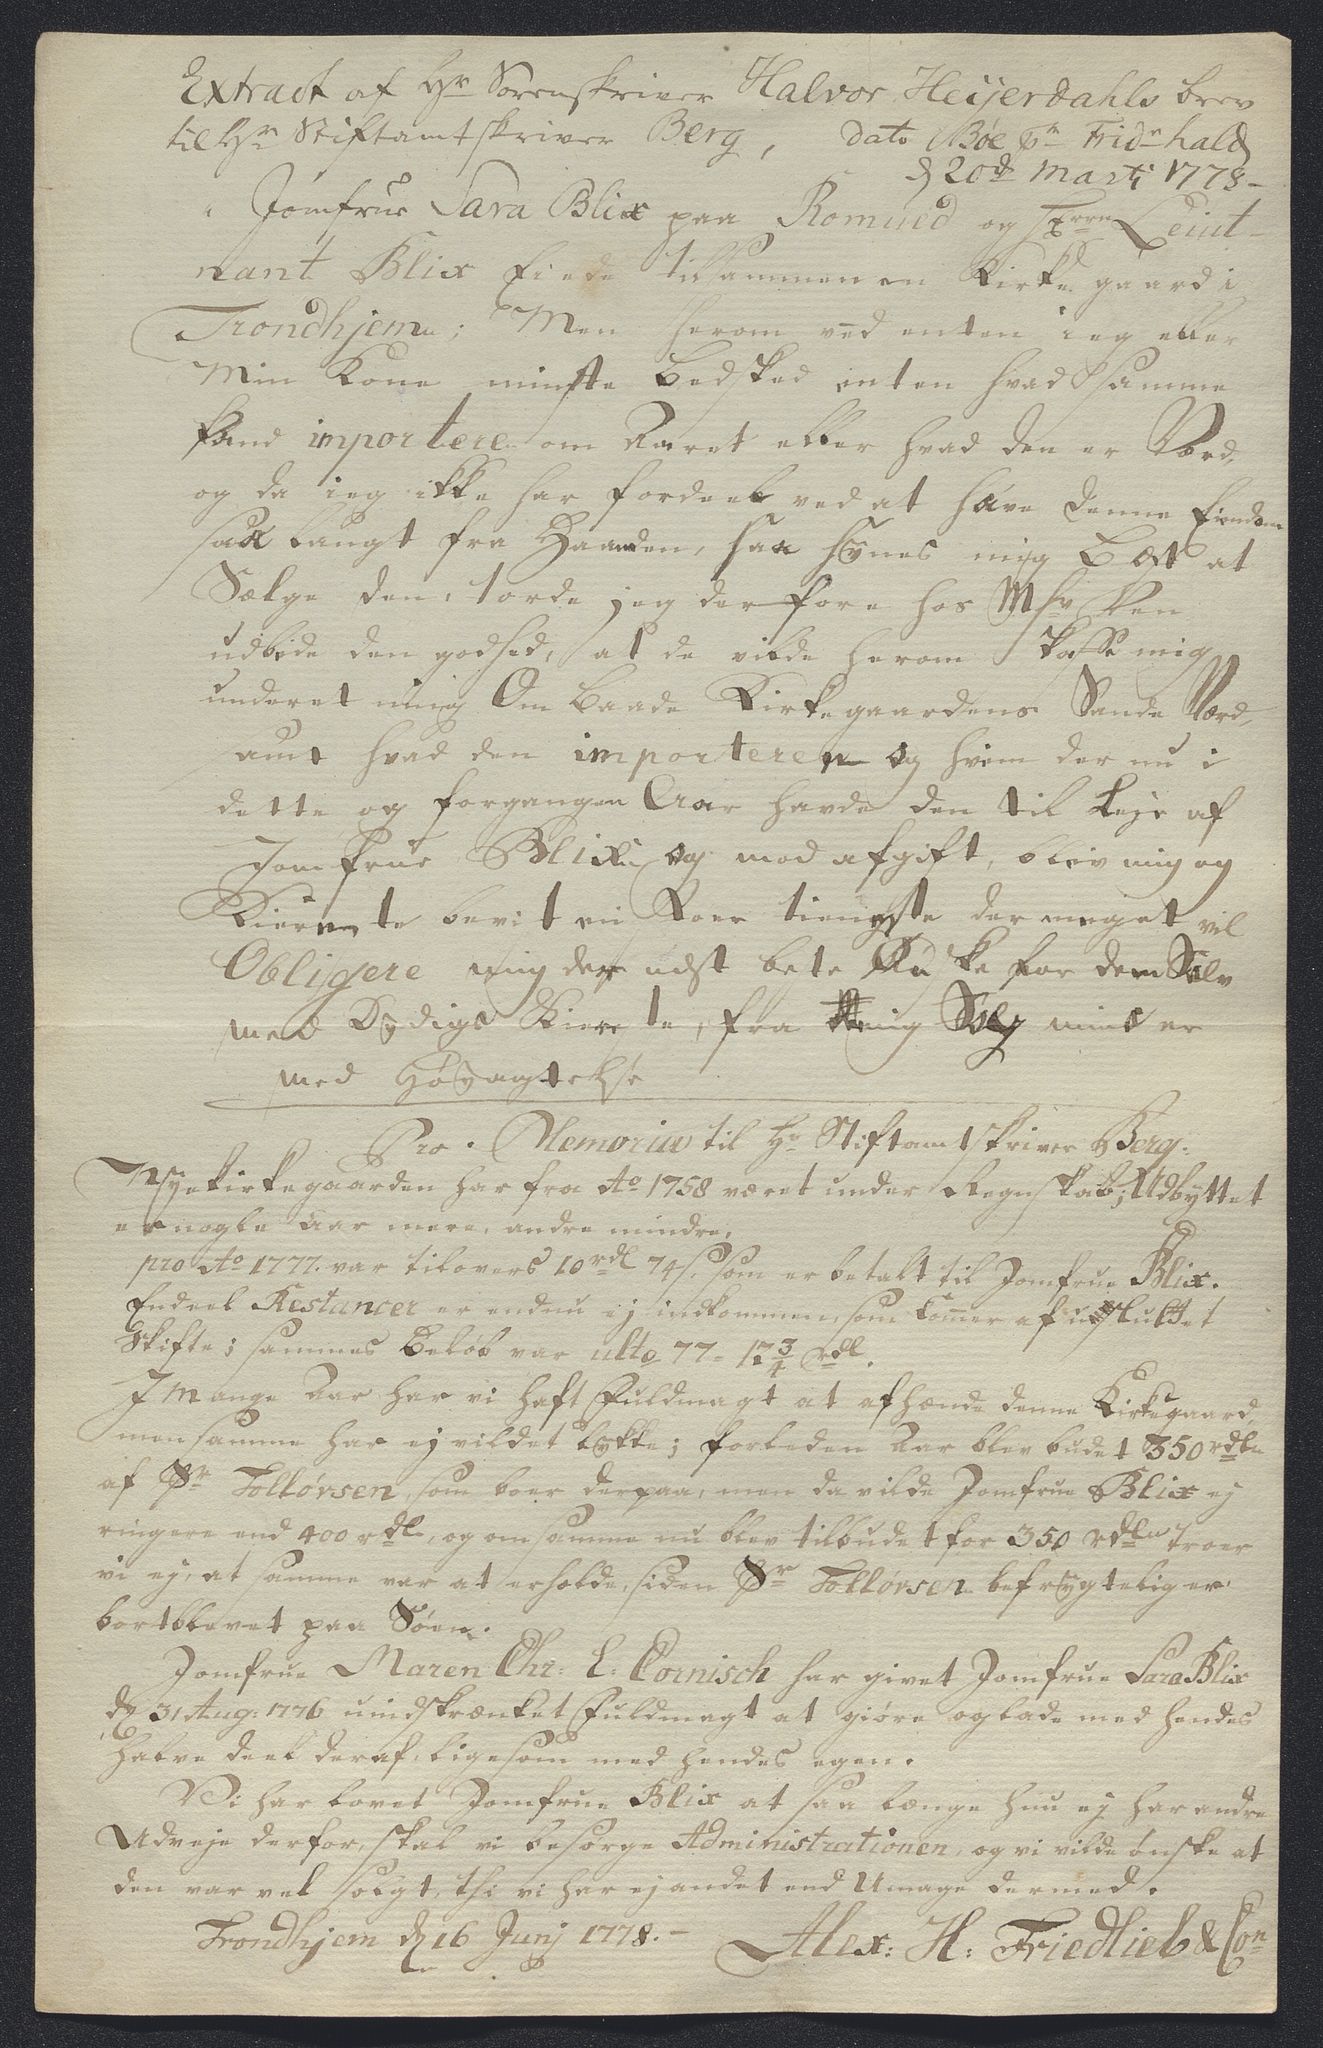 Extract af Hr Sorenskriver Halvor Heijerdahls brev
til Hr Stiftamtskriver Berg, dato Bøe pr Fridrhald
d 20de Marti 1778-
Jomfrue Sara Blix paa Romued og Leiut-
nant Blix Eiede tilsammen en Kirkegaard i
Trondhjem; Men herom ved enten ieg eller
Min Kone minste beskeed enten hvad samme
kand importere om Aaret eller hvad den er Værd,
og da ieg ikke har fordeel ved at have denne Eiendom
saa langt fra Haanden, saa synes mig Best at
Sælge den, torde jeg derfore hos Msr Ven
udbede den godhed, at de vilde herom skaffe mig
underetning Om baade Kirkegaardens Sande Værd,
amt hvad den importerer og hvem der nu i
dette og forgangen Aar havde den til Leje af
Jomfrue Blix og mod afgift, blev mig og
Kiereste bevist en stoer tieneste der meget vil
Obligere mig der udst beste Ønske for dem Selv
med Dydige Kiereste, fra mig Selv mine er
med Høyagtelse
Pro Memoria til Hr Stiftamtskriver Berg.
Nyekirkegaarden har fra Ao 1758 været under Regnskab; Udbyttet
er nogle Aar mere, andre mindre,
pro Ao 1777. var tilovers 10 rdl 74 s. som er betalt til Jomfrue Blix.
Endeel Restancer er endnu ej indkommen, som kommer af usluttet
Skifte; sammes Beløb var ulto 77 = 12 3/4 rdl.
I Mange Aar har vi haft Fuldmagt at afhænde denne Kirkegaard,
men samme har ej vildet lykke; forleden Aar blev budet 350 rdlr
af Sr Tollørsen, som boer derpaa, men da vilde Jomfrue Blix ej
ringere end 400 rdl, og om samme nu blev tilbudet for 350 rdlr troer
vi ej, at samme var at erholde, siden Sr Tollørsen befrygtelig er
bortblevet paa Søen.
Jomfrue Maren Chr: E: Cornisch har givet Jomfrue Sara Blix
d 31 Aug: 1776 uindskrænket Fuldmagt at giøre og lade med hendes
halve deel deraf, ligesom med hendes egen.
Vi har lovet Jomfrue Blix at saa længe hun ej har andre
Udveje derfor, skal vi besørge Administrationen, og vi vilde ønske at
den var vel solgt, thi vi har ej andet end Umage dermed.
Trondhjem d 16 Junj 1778.- Alex: H: Friedlieb & Con